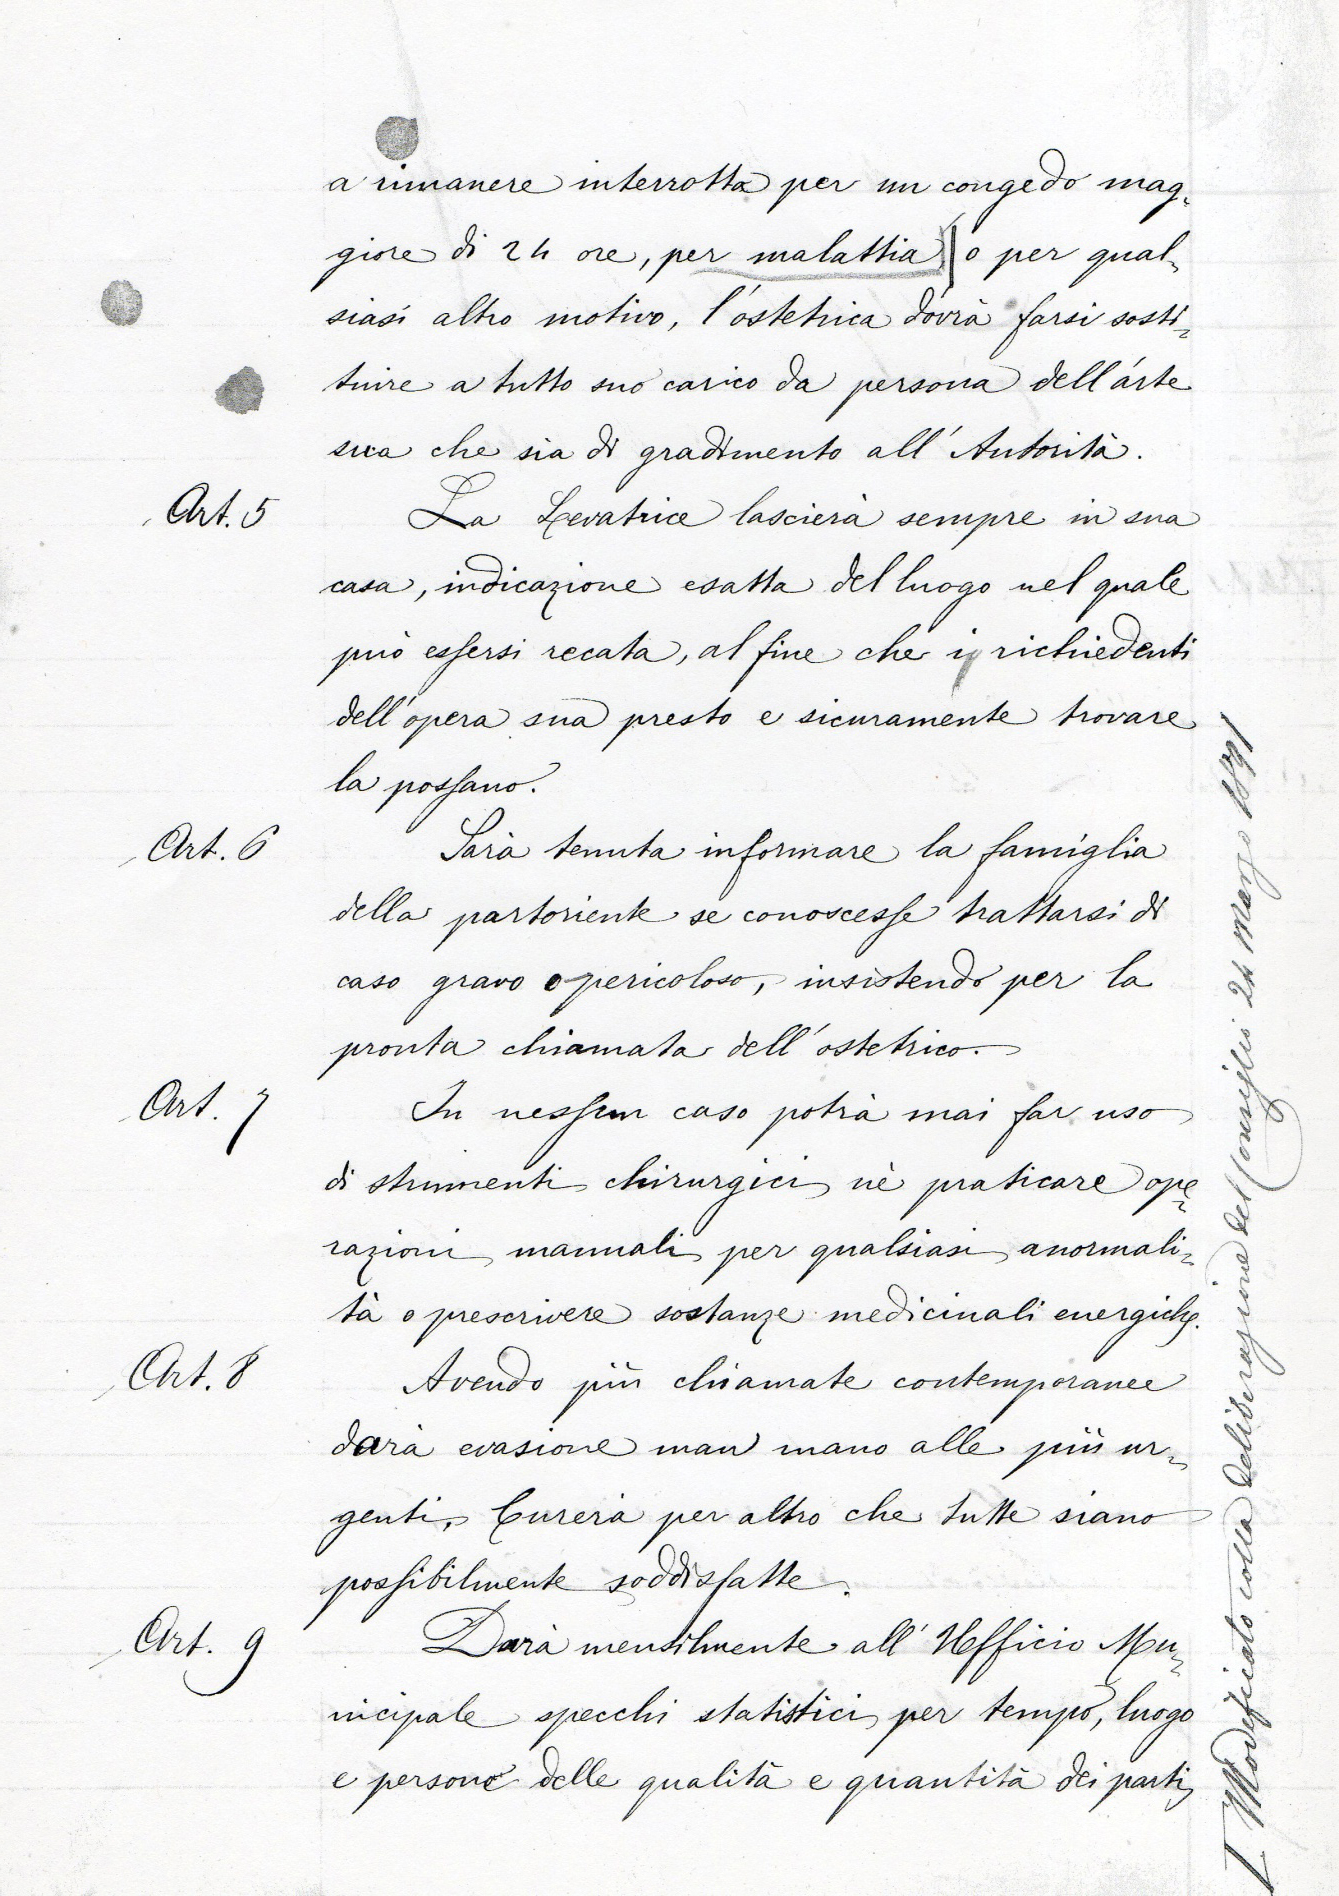 a rimanere interrotta per un congedo mag=
giore di 24 ore, per malattia o per qual=
siasi altro motivo, l'ostetrica dovrà farsi sosti=
tuire a tutto suo carico da persona dell'arte
sua che sia di gradimento all'Autorità.
Art. 5 La Levatrice lascierà sempre in sua
casa, indicazione esatta del luogo nel quale
può essersi recata, al fine che i richiedenti
dell'opera sua presto e sicuramente trovare
la possano.
Art. 6 Sarà tenuta informare la famiglia
della partoriente se conoscesse trattarsi di
caso grave o pericoloso, insistendo per la
pronta chiamata dell'ostetrico.
Art. 7 In nessun caso potrà mai far uso
di strumenti chirurgici nè praticare ope=
razioni manuali per qualsiasi anormali=
tà o prescrivere sostanze medicinali energiche.
Art. 8 Avendo più chiamate contemporanee
darà evasione man mano alle più ur=
genti, Curerà per altro che tutte siano
possibilmente soddisfatte.
Art. 9 Darà mensilmente all'Ufficio Mu=
nicipale specchi statistici per tempo, luogo
e persone delle qualità e quantità dei parti
Modificato colla deliberazione del Consiglio 24 Marzo 1891